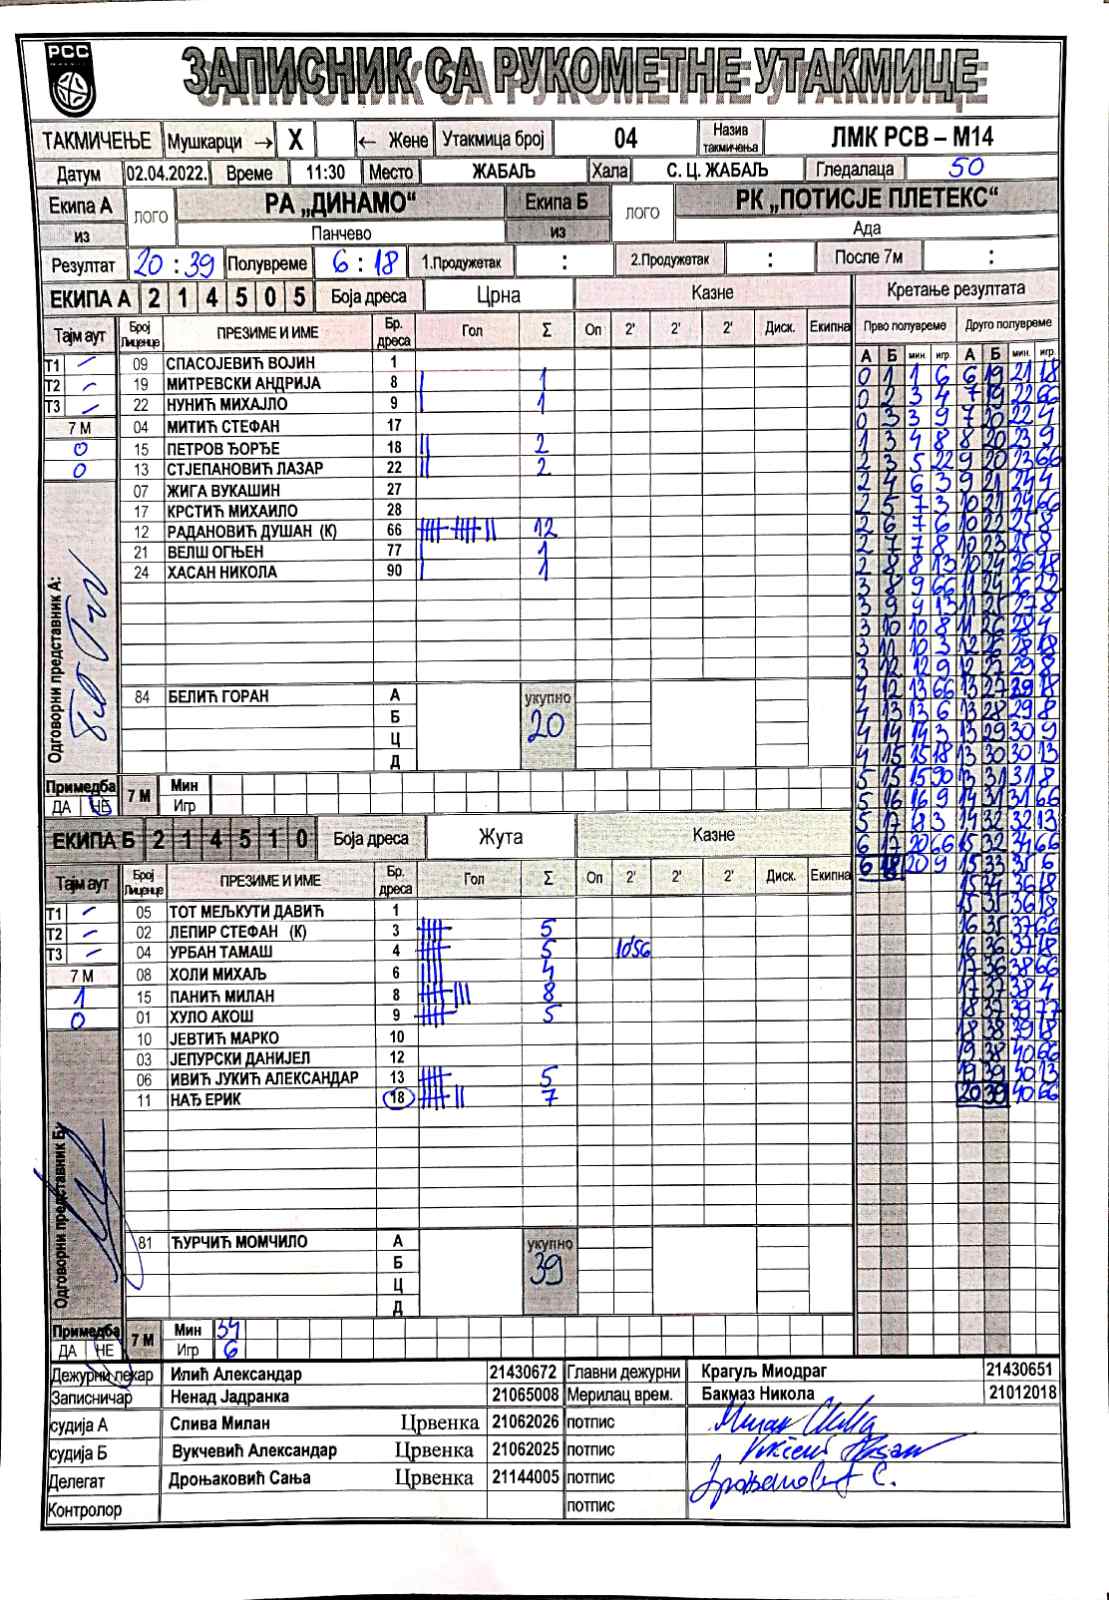 РСС
ЗАПИСНИК СА РУКОМЕТНЕ УТАКМИЦЕ
ТАКМИЧЕЊЕ Мушкарци → X ← Жене Утакмица број 04 Назив такмичења ЛМК РСВ – М14
Датум 02.04.2022. Време 11:30 Место ЖАБАЉ Хала С. Ц. ЖАБАЉ Гледалаца 50
Екипа А ЛОГО РА „ДИНАМО“ Екипа Б ЛОГО РК „ПОТИСЈЕ ПЛЕТЕКС“
из Панчево из Ада
Резултат 20 : 39 Полувреме 6 : 18 1.Продужетак : 2.Продужетак : После 7м :
ЕКИПА А 2 1 4 5 0 5 Боја дреса Црна Казне Кретање резултата
Тајм аут Број Лиценце ПРЕЗИМЕ И ИМЕ Бр. дреса Гол Σ Оп 2' 2' 2' Диск. Екипна Прво полувреме Друго полувреме
А Б мин игр. А Б мин. игр.
Т1 – 09 СПАСОЈЕВИЋ ВОЈИН 1
Т2 – 19 МИТРЕВСКИ АНДРИЈА 8 | 1
Т3 – 22 НУНИЋ МИХАЈЛО 9 | 1
7 М 04 МИТИЋ СТЕФАН 17
0 15 ПЕТРОВ ЂОРЂЕ 18 || 2
0 13 СТЈЕПАНОВИЋ ЛАЗАР 22 || 2
07 ЖИГА ВУКАШИН 27
17 КРСТИЋ МИХАИЛО 28
12 РАДАНОВИЋ ДУШАН (К) 66 12
21 ВЕЛШ ОГЊЕН 77 | 1
24 ХАСАН НИКОЛА 90 | 1
Одговорни представник А:
84 БЕЛИЋ ГОРАН А укупно 20
Б
Ц
Д
Примедба ДА НЕ 7 М Мин
Игр
0 1 1 6 6 19 21 18
0 2 3 4 7 19 22 66
0 3 3 9 7 20 22 4
1 3 4 8 8 20 23 9
2 3 5 22 9 20 23 66
2 4 6 3 9 21 24 4
2 5 7 3 10 21 24 66
2 6 7 6 10 22 25 8
2 7 7 8 10 23 25 8
2 8 8 13 10 24 26 18
3 8 9 66 11 24 26 22
3 9 9 13 11 25 27 8
3 10 10 8 11 26 28 4
3 11 10 3 12 26 28 18
3 12 12 9 12 27 29 8
4 12 13 66 13 27 29 18
4 13 13 6 13 28 29 8
4 14 14 3 13 29 30 9
4 15 15 18 13 30 30 13
5 15 15 90 13 31 31 8
5 16 16 9 14 31 31 66
5 17 18 3 14 32 32 13
6 17 20 66 15 32 34 66
6 18 20 9 15 33 35 6
15 34 36 18
15 35 36 18
16 35 37 66
16 36 37 18
17 36 38 66
17 37 38 4
18 37 39 77
18 38 39 18
19 38 40 66
19 39 40 13
20 39 40 66
ЕКИПА Б 2 1 4 5 1 0 Боја дреса Жута Казне
Тајм аут Број Лиценце ПРЕЗИМЕ И ИМЕ Бр. дреса Гол Σ Оп 2' 2' 2' Диск. Екипна
Т1 – 05 ТОТ МЕЉКУТИ ДАВИЋ 1
Т2 – 02 ЛЕПИР СТЕФАН (К) 3 5
Т3 – 04 УРБАН ТАМАШ 4 5 1056
7 М 08 ХОЛИ МИХАЉ 6 |||| 4
1 15 ПАНИЋ МИЛАН 8 8
0 01 ХУЛО АКОШ 9 5
10 ЈЕВТИЋ МАРКО 10
03 ЈЕПУРСКИ ДАНИЈЕЛ 12
06 ИВИЋ ЈУКИЋ АЛЕКСАНДАР 13 5
11 НАЂ ЕРИК 18 7
Одговорни представник Б:
81 ЋУРЧИЋ МОМЧИЛО А укупно 39
Б
Ц
Д
Примедба ДА НЕ 7 М Мин 34
Игр 6
Дежурни лекар Илић Александар 21430672 Главни дежурни Крагуљ Миодраг 21430651
Записничар Ненад Јадранка 21065008 Мерилац врем. Бакмаз Никола 21012018
судија А Слива Милан Црвенка 21062026 потпис
судија Б Вукчевић Александар Црвенка 21062025 потпис
Делегат Дроњаковић Сања Црвенка 21144005 потпис
Контролор потпис